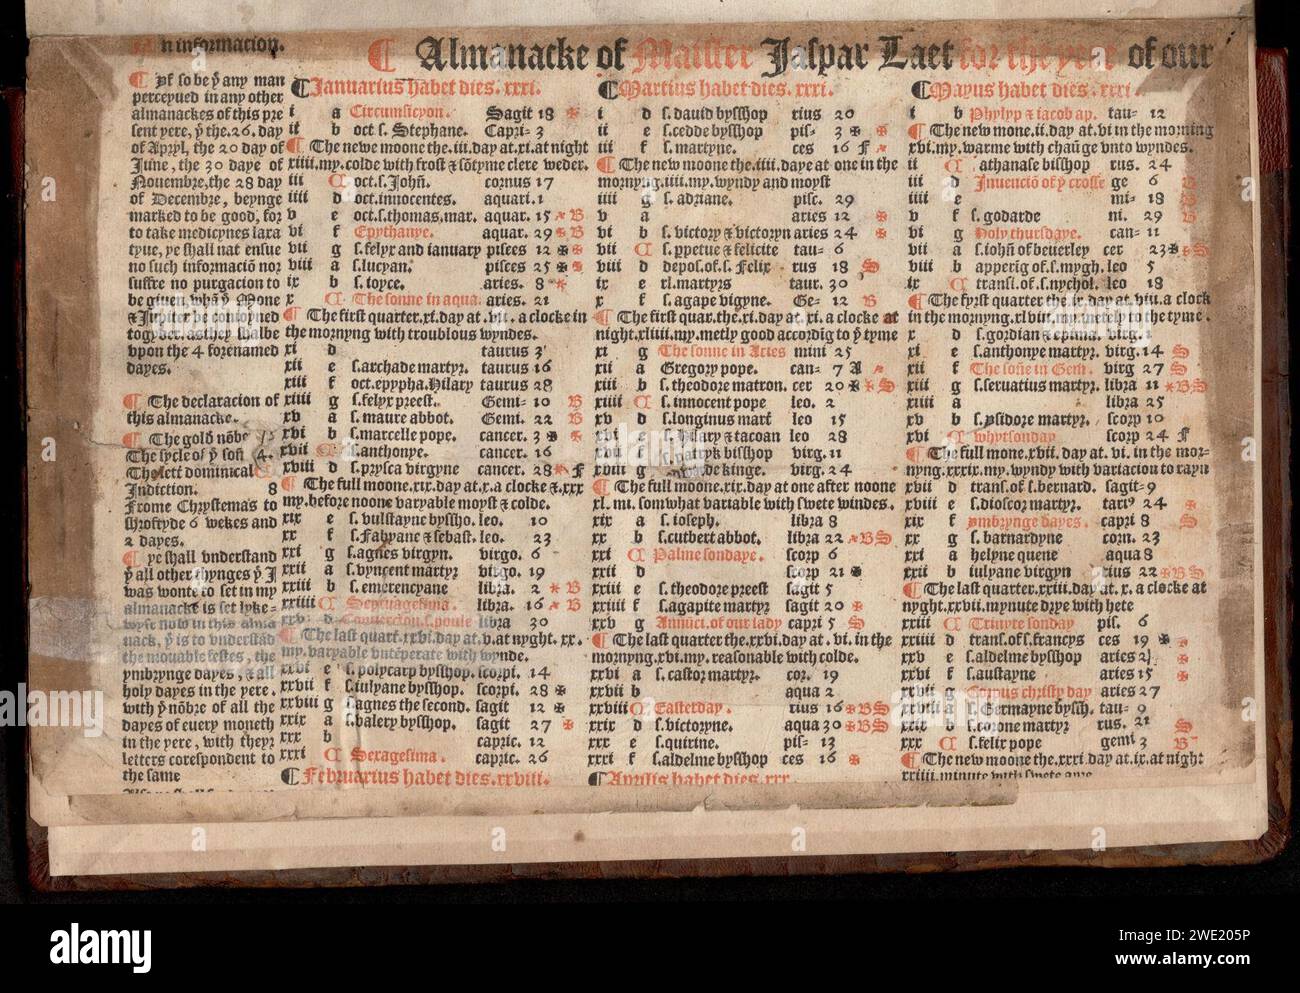 An informacion.
¶ Almanacke of Maister Jaspar Laet for the yere of our
¶ yf so be ẏ any man
perceyued in any other
almanackes of this pre
sent yere, ẏ the .26. day
of Apryl, the 20 day of
June, the 30 daye of
Nouembre, the 28 day
of Decembre, beynge
marked to be good, for
to take medicynes laxa
tyue, ye shall nat ensue
no such informaciō nor
suffre no purgacion to
be giuen, whā ẏ Mone
& Jupiter be conioyned
togyder, as they shalbe
vpon the 4 forenamed
dayes.
¶ The declaracion of
this almanacke.
¶ The goldē nōbre
The sycle of ẏ son 4.
The lett dominical
Indiction. 8
Frome Chrystemas to
shroftyde 6 wekes and
2 dayes.
¶ ye shall vnderstand
ẏ all other thynges ẏ I
was wonte to set in my
almanacke is set lyke-
wyse now in this alma
nack, ẏ is to vnderstād
the mouable festes, the
ymbrynge dayes, & all
holy dayes in the yere.
with ẏ nōbre of all the
dayes of euery moneth
in the yere, with theyr
letters corespondent to
the same
¶ Januarius habet dies. xxxi.
i a Circumsicyon. Sagit 18 ✠
ii b oct s. Stephane. Capri- 3
¶ The newe moone the .iii. day at .xi. at night
xiiii. my. colde with frost & sōtyme clere weder.
iii ¶ oct. s. Johñ. cornus 17
iiii d oct. innocentes. aquari. 1
v e oct. s. thomas. mar. aquar. 15 ✠ B
vi f Epythanye. aquar. 29 ✠ B
vii g s. felyx and ianuary pisces 12 ✠ ✠
viii a s. lucyan. pisces 25 ✠ ✠
ix b s. ioyce. aries. 8 ✠
x ¶ The sonne in aqua. aries. 21
¶ The first quarter. xi. day at .vii. a clocke in
the mornyng with troublous wyndes.
xi d taurus 3
xii e s. archade martyr. taurus 16
xiii f oct. eppyha. Hilary taurus 28
xiiii g s. felyx preest. Gemi- 10 B
xv a s. maure abbot. Gemi. 22 B
xvi b s. marcelle pope. cancer. 3 ✠ ✠
xvii ¶ s. anthonye. cancer. 16
xviii d s. prysca virgyne cancer. 28 ✠ F
¶ The full moone. xix. day at .x. a clocke & .xxx
my. before noone varyable moyst & colde.
xix e s. vulstayne bysshop. leo. 10
xx f s. Fabyane & sebast. leo. 23
xxi g s. agnes virgyn. virgo. 6
xxii a s. vyncent martyr virgo. 19
xxiii b s. emerencyane libra. 2 ✠ B
xxiiii ¶ Septuagesima. libra. 16 ✠ B
xxv d Conuercion. s. poule libra 30
¶ The last quart. xxvi. day at .v. at nyght. xx.
my. varyable vntēperate with wynde.
xxvi e s. polycarp bysshop. scorpi. 14
xxvii f s. iulyane bysshop. scorpi. 28 ✠
xxviii g s. agnes the second. sagit 12 ✠
xxix a s. balery bysshop. sagit 27 ✠
xxx b capric. 12
xxxi ¶ Sexagesima. capric. 26
¶ Februarius habet dies. xxviii.
¶ Martius habet dies. xxxi.
i d s. dauid bysshop rius 20
ii e s. cedde bysshop pis- 3 ✠ ✠
iii f s. martyne. ces 16 F ✠
¶ The new moone the .iiii. daye at one in the
mornyng. iiii. my. wyndy and moyst
iiii g s. adriane. pisc. 29
v a aries 12 ✠
vi b s. victory & victoryn aries 24 ✠
vii ¶ s. ppetue & felicite tau- 6
viii d depos. of. s. Felix rus 18 S
ix e xl. martyrs taur. 30
x f s. agape vigyne. Ge- 12 B
¶ The first quar. the .xi. day at .xi. a clocke at
night. xliii. my. metly good accordīg to ẏ tyme
xi g The sonne in Aries mini 25
xii a Gregory pope. can- 7 A ✠
xiii b s. theodore matron. cer 20 ✠ ✠ S
xiiii ¶ s. innocent pope leo. 2
xv d s. longinus mart leo 15
xvi e s. hilary & tacoan leo 28
xvii f s. patryk bisshop virg. 11
xviii g kinge. virg. 24
¶ The full moone. xix. day at one after noone
xl. mi. somwhat variable with swete windes.
xix a s. ioseph. libra 8
xx b s. cutbert abbot. libra 22 ✠ B S
xxi ¶ Palme sondaye. scorp 6
xxii d scorp 21 ✠
xxiii e s. theodore preest sagit 5
xxiiii f s. agapite martyr sagit 20 ✠
xxv g Annūci. of our lady capri 5 S
¶ The last quarter the .xxvi. day at .vi. in the
mornyng. xvi. my. reasonable with colde.
xxvi a s. castor martyr. cor. 19
xxvii b aqua 2
xxviii ¶ Easterday. rius 16 ✠ B S
xxix d s. victoryne. aqua 30 ✠ B S
xxx e s. quirine. pis- 13
xxxi f s. aldelme bysshop ces 16 ✠
¶ Aprilis habet dies. xxx.
¶ Mayus habet dies. xxxi.
i b Phylyp & iacob ap. tau- 12
¶ The new mone. ii. day at .vi in the morning
xvi. my. warme with chaūge vnto wyndes.
ii ¶ athanase bisshop rus. 24
iii d Inuenciō of ẏ crosse ge 6 B
iiii e mi- 18 B
v f s. godarde ni. 29 B
vi g Holy thursdaye. can- 11
vii a s. iohñ of beuerley cer 23 ✠ ✠ S
viii b apperig of. s. mygh. leo 5
ix ¶ transl. of s. nychol. leo 18
¶ The fyrst quarter the .ix. day at .viii. a clock
in the mornyng. xlviii. my. metely to the tyme.
x d s. gordian & epima. virg. 1
xi e s. anthonye martyr. virg. 14 S
xii f The soñe in Gem. virg 27 S
xiii g s. seruatius martyr. libra 11 ✠ B S
xiiii a libra 25
xv b s. ysidore martyr. scorp 10
xvi ¶ whytsonday scorp 24 F
¶ The full mone. xvii. day at .vi. in the mor-
nyng. xxxix. my. wyndy with variacion to rayn
xvii d trans. of s. bernard. sagit- 9
xviii e s. dioscor martyr. tari⁹ 24 ✠
xix f ymbrynge dayes. capri 8 S
xx g s. barnardyne corn. 23
xxi a helyne quene aqua 8
xxii b iulyane virgyn rius 22 ✠ B S
¶ The last quarter. xxiii. day at .x. a clocke at
nyght. xxvii. mynute drye with hete
xxiii ¶ Trinyte sonday pis. 6
xxiiii d trans. of s. francys ces 19 ✠
xxv e s. aldelme bysshop aries 2 ✠
xxvi f s. austayne aries 15 ✠
xxvii g Corpus christy day aries 27
xxviii a s. Germayne bysh. tau- 9
xxix b s. corone martyr rus. 21 S
xxx ¶ s. felix pope gemi 3 B
¶ The new moone the .xxxi. day at .ix. at night
xxiiii. minute with swete ayre
alamy
Image ID: 2WE205P
www.alamy.com